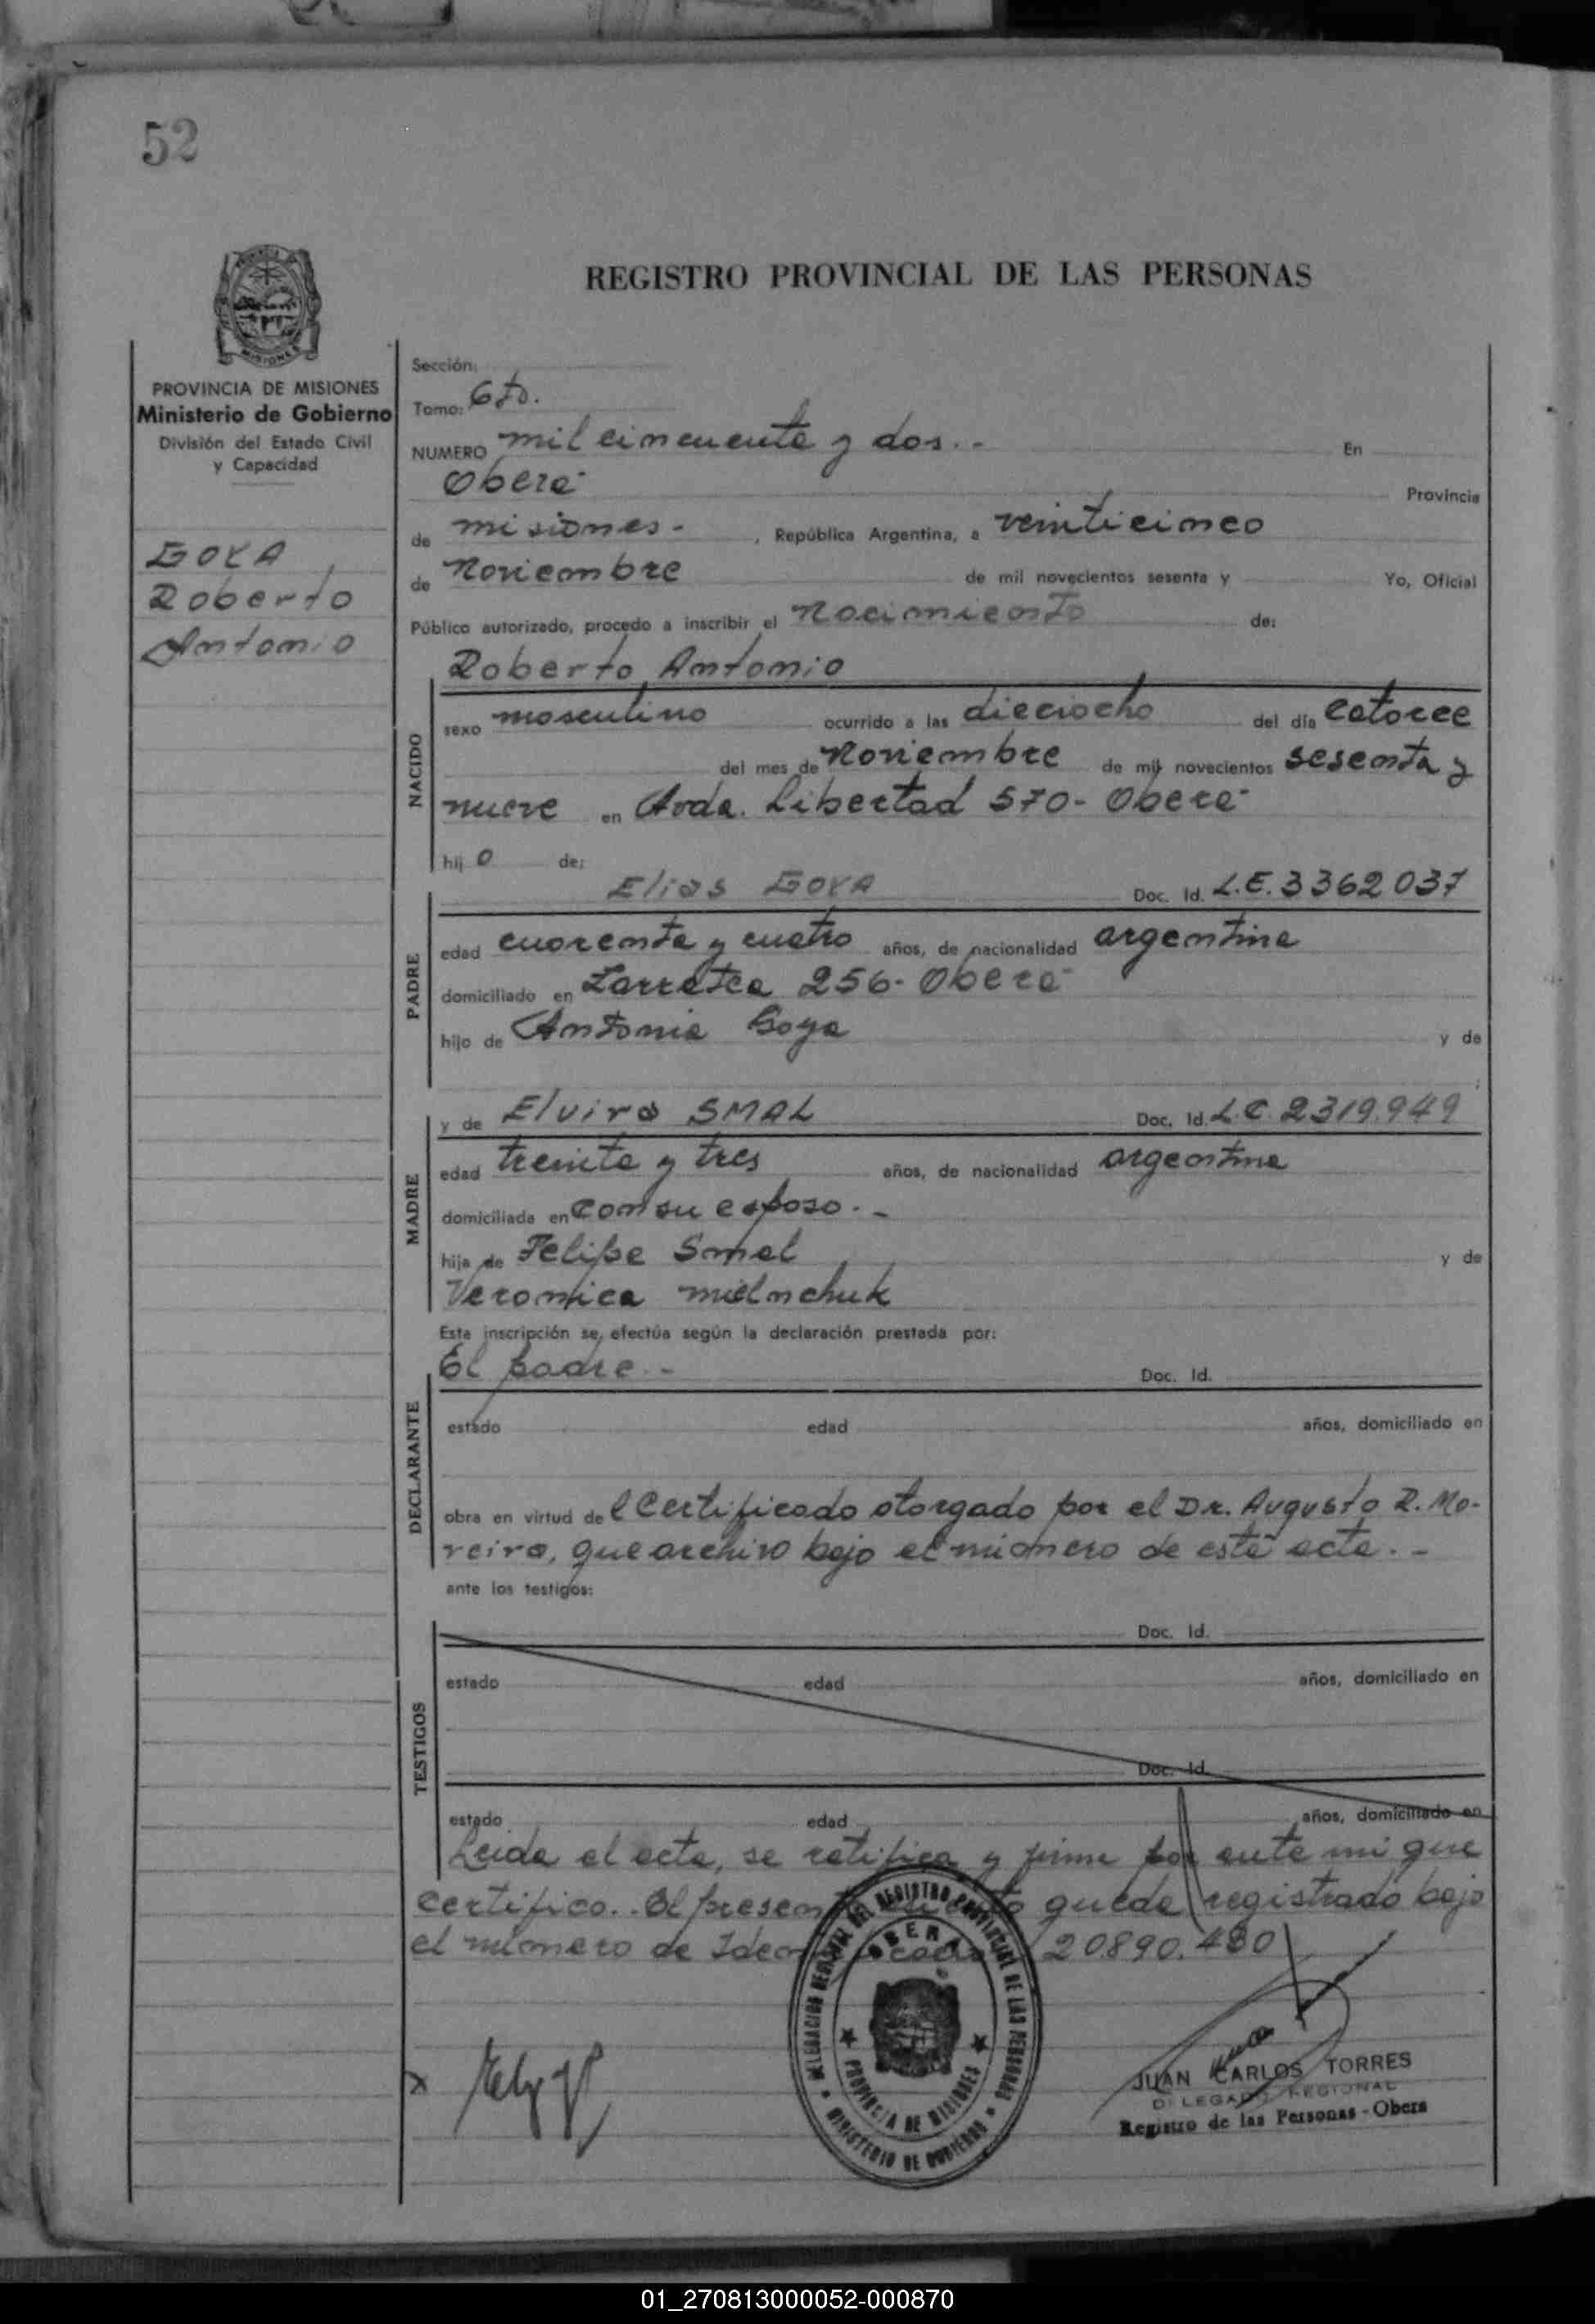 52
REGISTRO PROVINCIAL DE LAS PERSONAS
MISIONES
PROVINCIA DE MISIONES
Ministerio de Gobierno
División del Estado Civil
y Capacidad
GOYA
Roberto
Antonio
Sección:
Tomo: 6to.
NUMERO mil cincuenta y dos.- En
Oberá Provincia
de misiones- , República Argentina, a veinticinco
de Noviembre de mil novecientos sesenta y Yo, Oficial
Público autorizado, procedo a inscribir el Nacimiento de:
Roberto Antonio
NACIDO
sexo masculino ocurrido a las dieciocho del día catorce
del mes de Noviembre de mil novecientos sesenta y
nueve en Avda. Libertad 570- Oberá-
hij o de:
Elias GOYA Doc. Id. L.E. 3362037
PADRE
edad cuarenta y cuatro años, de nacionalidad argentina
domiciliado en Larratea 256- Oberá-
hijo de Antonia Goya y de
MADRE
y de Elvira SMAL Doc. Id. L.C. 2319.949
edad treinta y tres años, de nacionalidad argentina
domiciliada en con su esposo.-
hija de Felipe Smal y de
Veronica mielnchuk
Esta inscripción se efectúa según la declaración prestada por:
El padre.- Doc. Id.
DECLARANTE
estado edad años, domiciliado en
obra en virtud del Certificado otorgado por el Dr. Augusto R. Mo-
reira, que archivo bajo el número de esta acta.-
ante los testigos:
TESTIGOS
Doc. Id.
estado edad años, domiciliado en
Doc. Id.
estado edad años, domiciliado en
Leida el acta, se ratifica y firma por ante mi que
certifico.- El presente queda registrado bajo
el número de 20890.480
DELEGACION REGIONAL DEL REGISTRO PROVINCIAL DE LAS PERSONAS
OBERA
PROVINCIA DE MISIONES
MINISTERIO DE GOBIERNO
JUAN CARLOS TORRES
DELEGADO REGIONAL
Registro de las Personas - Oberá
01_270813000052-000870